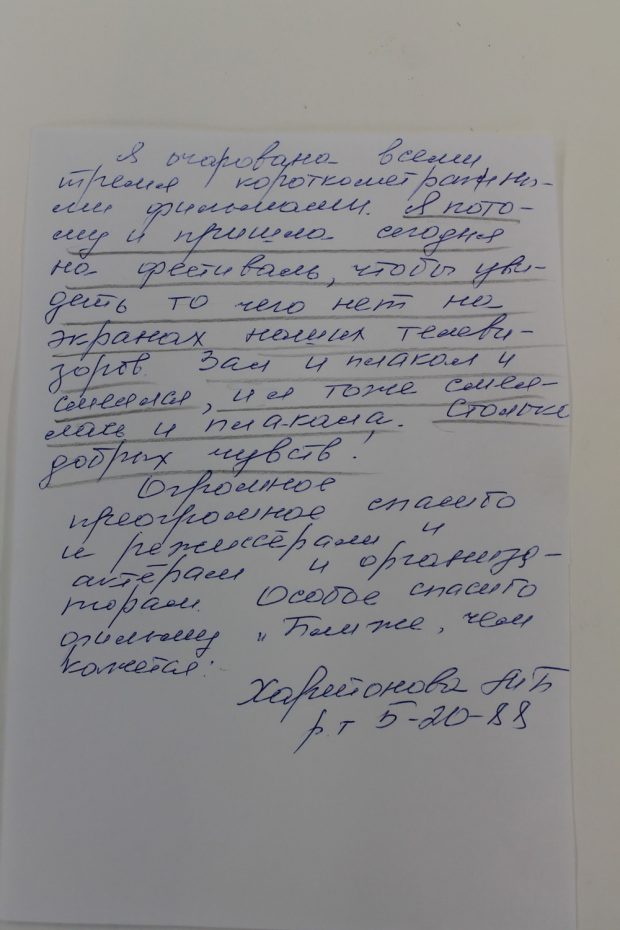 Я очарована всеми
тремя короткометражны-
ми фильмами. Я пото-
му и пришла сегодня
на фестиваль, чтобы уви-
деть то чего нет на
экранах наших телеви-
зоров. Зал и плакал и
смеялся, и я тоже смея-
лась и плакала. Столько
добрых чувств!
Огромное
преогромное спасибо
и режиссёрам и
актёрам и организа-
торам. Особое спасибо
фильму „Ближе, чем
кажется.
Харитонова
р.т 5-20-88